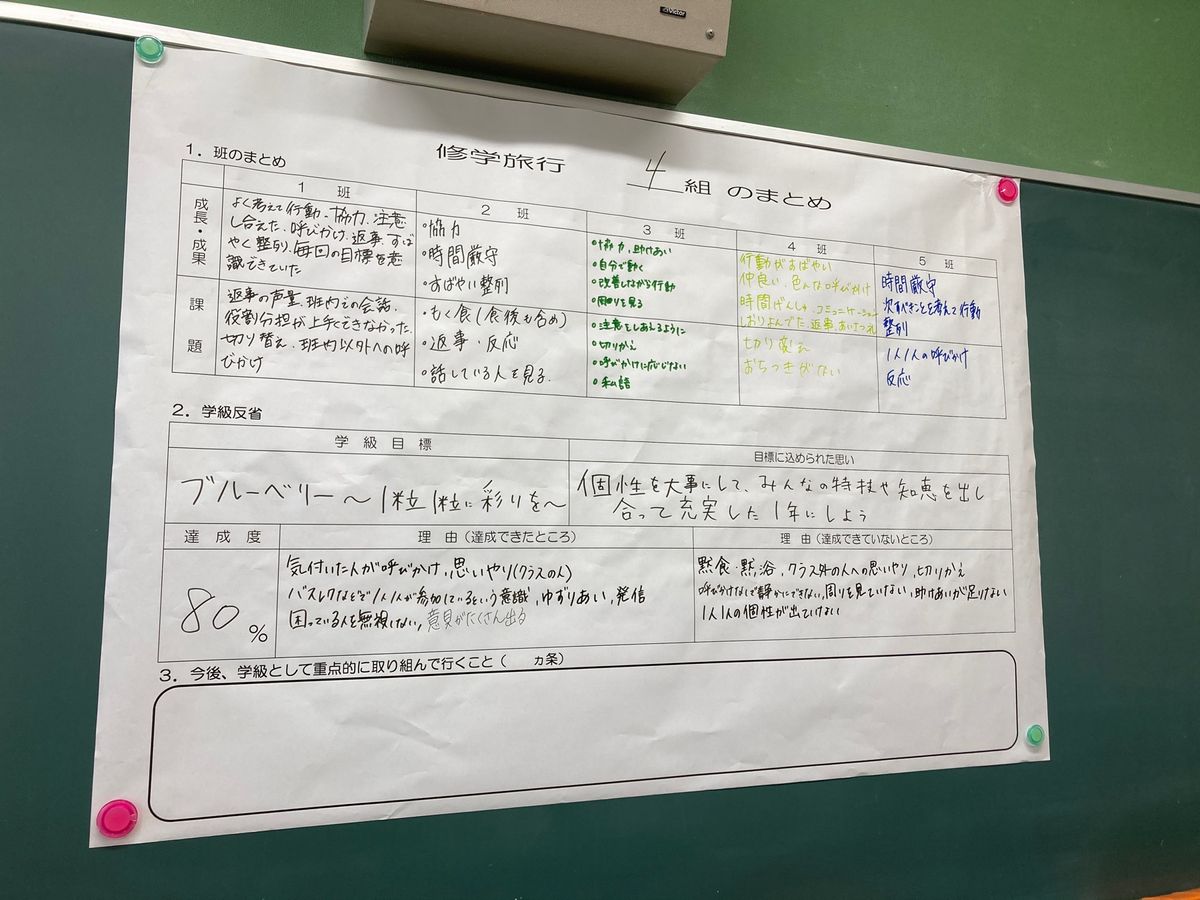 Victor
修学旅行 4組 のまとめ
1．班のまとめ
1 班
2 班
3 班
4 班
5 班
成長・成果
よく考えて行動、協力、注意
し合えた、呼びかけ、返事、すば
やく整列、毎回の目標を意
識できていた
・協力
・時間厳守
・すばやい整列
・協力、助けあい
・自分で動く
・改善しながら行動
・周りを見る
行動がすばやい
仲良い、色んな呼びかけ
時間げんしゅ、コミュニケーション
しおりよんでた、返事、あいさつ
時間厳守
次すべきことを考えて行動
整列
課題
返事の声量、班内での会話、
役割分担が上手くできなかった、
切り替え、班内以外への呼
びかけ
・もく食(食後も含め)
・返事・反応
・話している人を見る
・注意をしあえるように
・切りかえ
・呼びかけに応じない
・私語
切り変え
おちつきがない
1人1人の呼びかけ
反応
2．学級反省
学 級 目 標
目標に込められた思い
ブルーベリー～1粒1粒に彩りを～
個性を大事にして、みんなの特技や知恵を出し
合って充実した1年にしよう
達 成 度
理 由（達成できたところ）
理 由（達成できていないところ）
80 %
気付いた人が呼びかけ、思いやり(クラスの人)
バスレクなどで1人1人が参加しているという意識、ゆずりあい、発信
困っている人を無視しない、意見がたくさん出る
黙食・黙浴、クラス外の人への思いやり、切りかえ
呼びかけなしで静かにできない、周りを見ていない、助けあいが足りない
1人1人の個性が出ていない
3．今後、学級として重点的に取り組んで行くこと（ ヵ条）